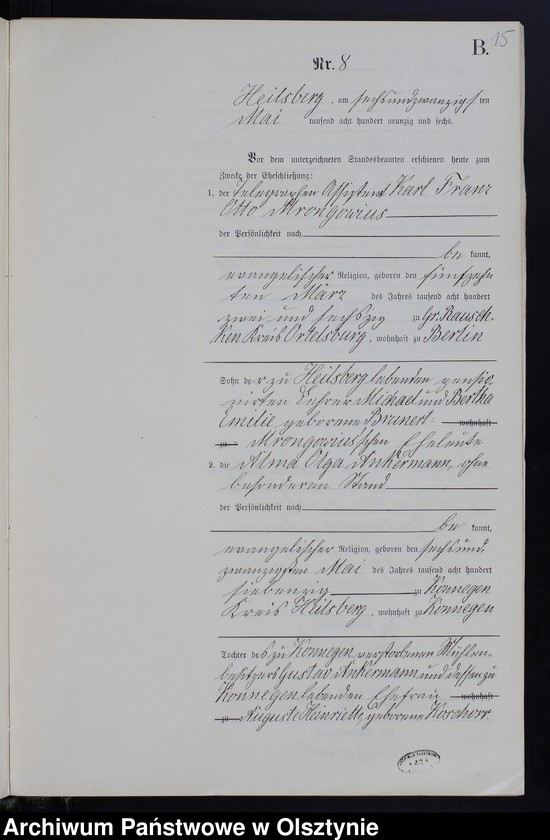 B. 15
Nr. 8
Heilsberg, am sechsundzwanzigsten
Mai tausend acht hundert neunzig und sechs.
Vor dem unterzeichneten Standesbeamten erschienen heute zum
Zweck der Eheschließung:
1. der Telegraphen Assistent Karl Franz
Otto Mrongowius
der Persönlichkeit nach
be kannt,
evangelischer Religion, geboren den fünfzehn
ten März des Jahres tausend acht hundert
zwei und sechszig zu Gr. Rausch-
ken Kreis Ortelsburg, wohnhaft zu Berlin
Sohn der zu Heilsberg lebenden pensio-
nirten Lehrer Michael und Bertha
Emilie geborene Brunert- wohnhaft
zu Mrongowius'schen Eheleute
2. die Alma Olga Ankermann, ohne
besonderen Stand
der Persönlichkeit nach
be kannt,
evangelischer Religion, geboren den sechsund-
zwanzigsten Mai des Jahres tausend acht hundert
siebenzig zu Konnegen
Kreis Heilsberg, wohnhaft zu Konnegen
Tochter des zu Konnegen verstorbenen Mühlen-
besitzers Gustav Ankermann und dessen zu
Konnegen lebenden Ehefrau wohnhaft
zu Auguste Heinriette, geborene Koschorr
Archiwum Państwowe w Olsztynie